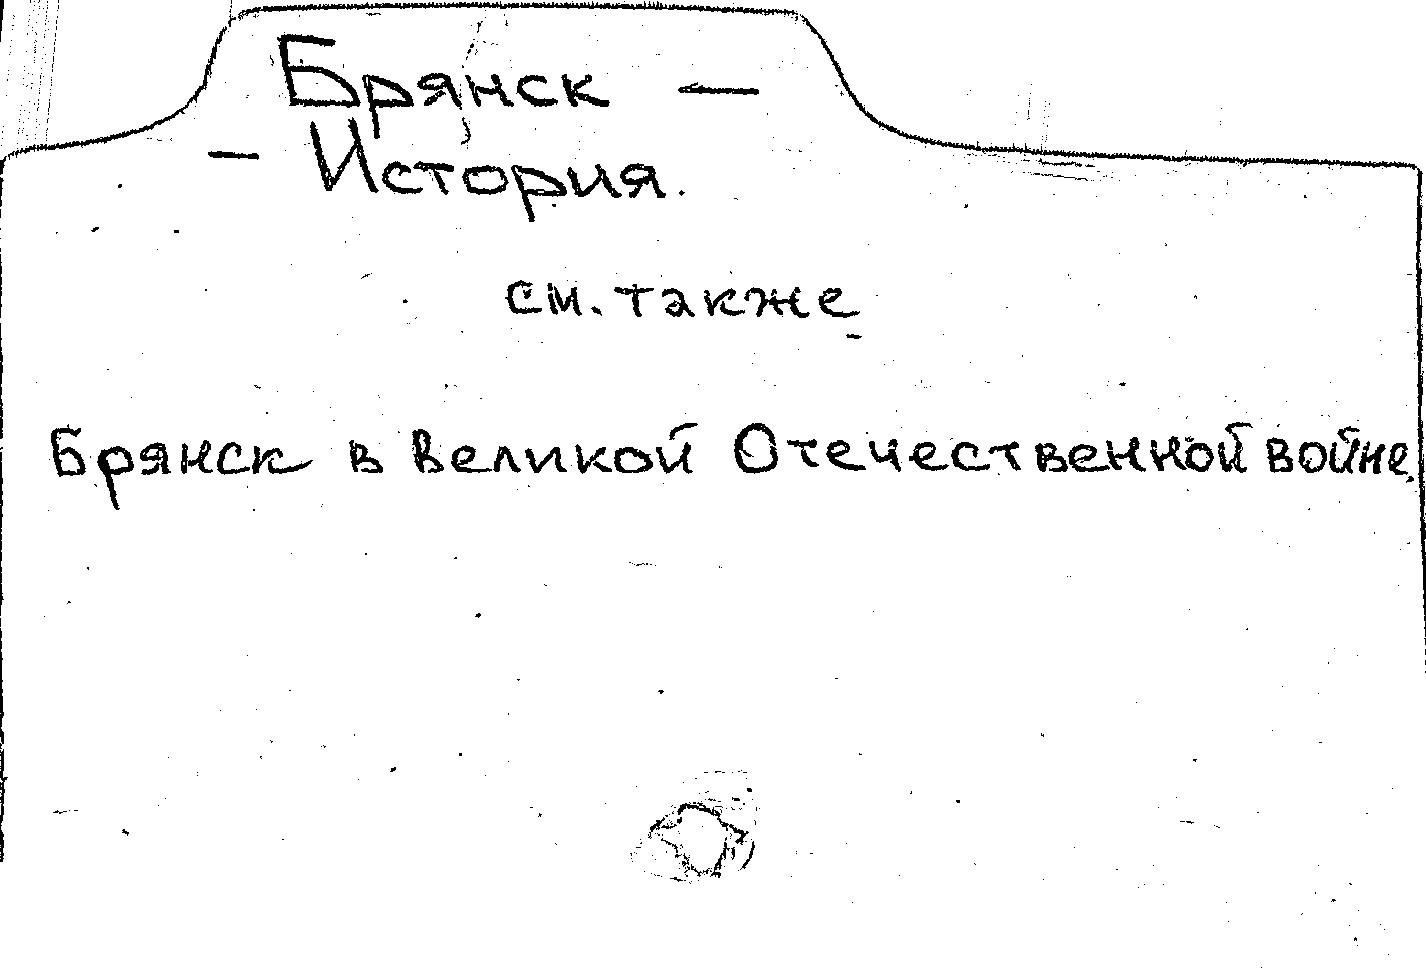 Брянск —
— История.
см. также
Брянск в Великой Отечественной войне.